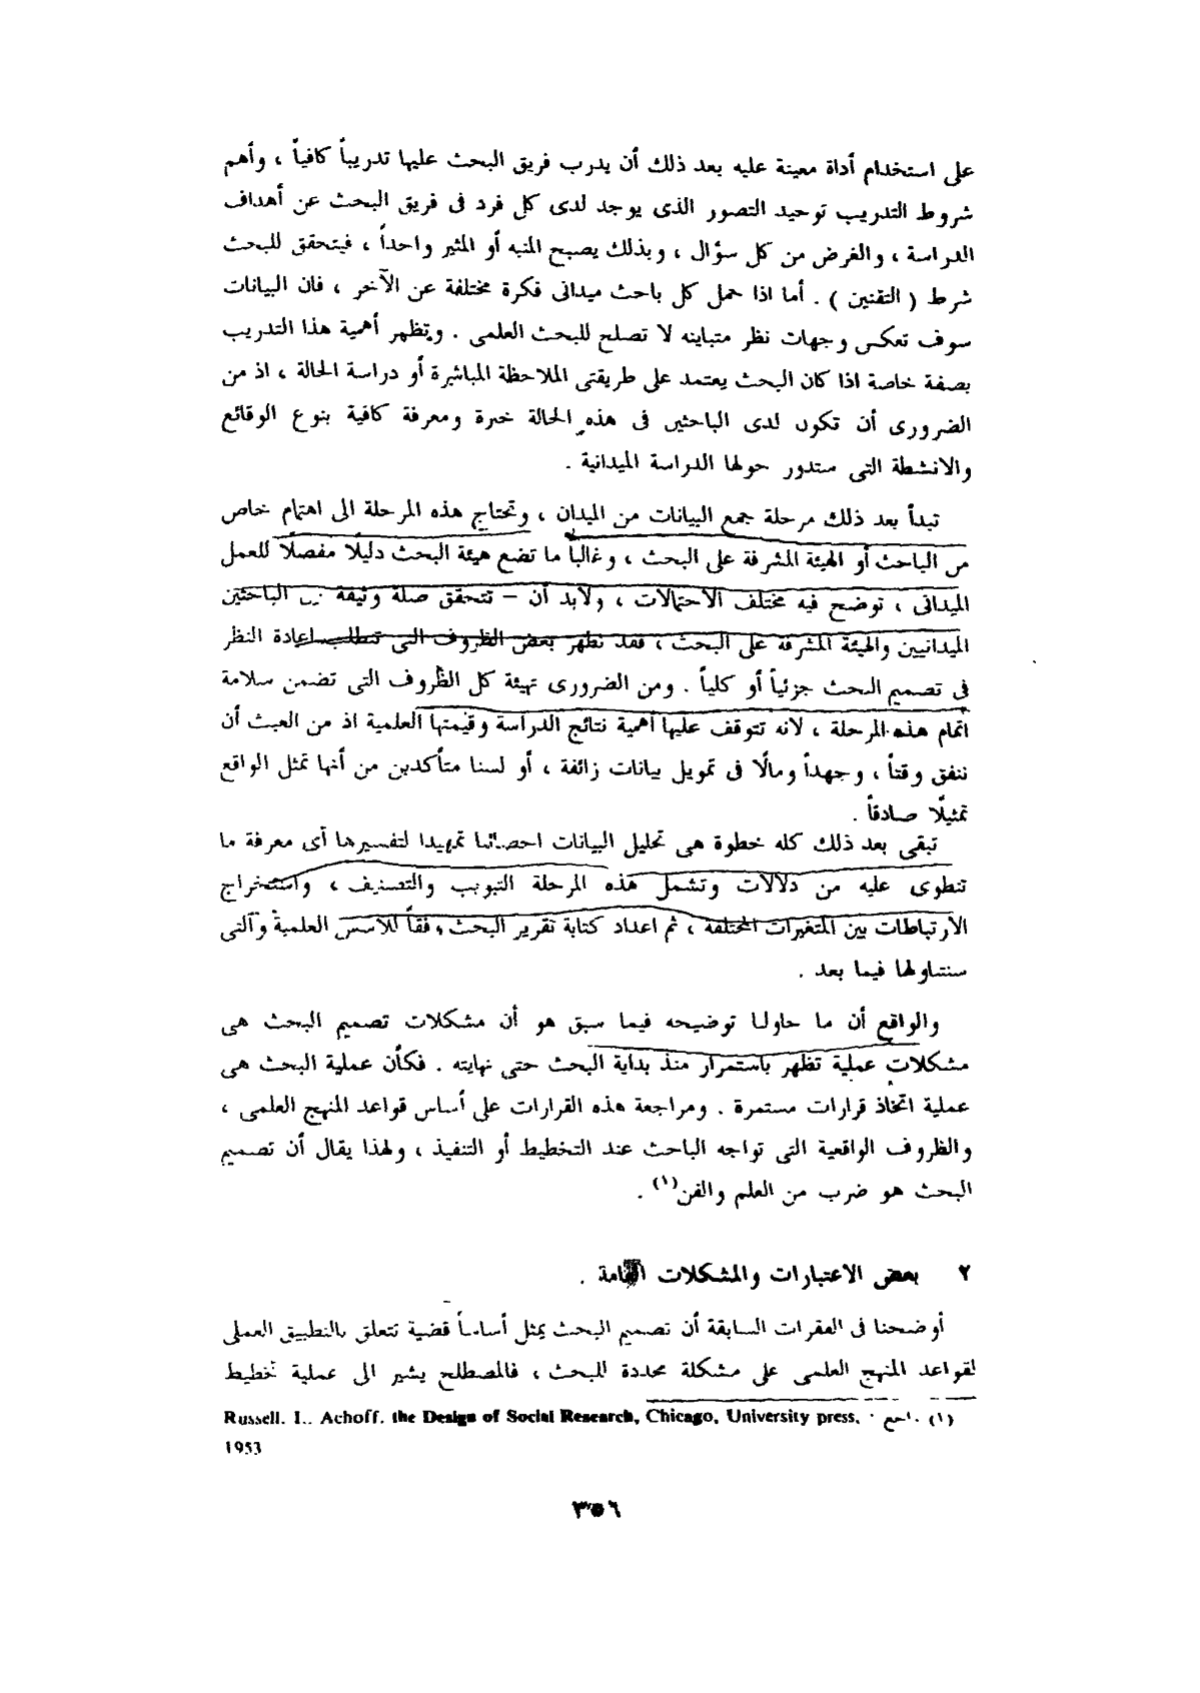 على استخدام أداة معينة عليه بعد ذلك أن يدرب فريق البحث عليها تدريباً كافياً ، وأهم
شروط التدريب توحيد التصور الذى يوجد لدى كل فرد فى فريق البحث عن أهداف
الدراسة ، والغرض من كل سؤال ، وبذلك يصبح المنبه أو المثير واحداً ، فيتحقق للبحث
شرط ( التقنين ) . أما اذا حمل كل باحث ميدانى فكرة مختلفة عن الآخر ، فان البيانات
سوف تعكس وجهات نظر متباينه لا تصلح للبحث العلمى . وتظهر أهمية هذا التدريب
بصفة خاصة اذا كان البحث يعتمد على طريقتى الملاحظة المباشرة أو دراسة الحالة ، اذ من
الضرورى أن تكون لدى الباحثين فى هذه الحالة خبرة ومعرفة كافية بنوع الوقائع
والانشطة التى ستدور حولها الدراسة الميدانية .
تبدأ بعد ذلك مرحلة جمع البيانات من الميدان ، وتحتاج هذه المرحلة الى اهتمام خاص
من الباحث أو الهيئة المشرفة على البحث ، وغالباً ما تضع هيئة البحث دليلًا مفصلًا للعمل
الميدانى ، توضح فيه مختلف الاحتمالات ، ولابد أن – تتحقق صلة وثيقة بين الباحثين
الميدانيين والهيئة المشرفة على البحث ، فقد تظهر بعض الظروف التى تتطلب اعادة النظر
فى تصميم البحث جزئياً أو كلياً . ومن الضرورى تهيئة كل الظروف التى تضمن سلامة
اتمام هذه المرحلة ، لانه تتوقف عليها أهمية نتائج الدراسة وقيمتها العلمية اذ من العبث أن
ننفق وقتاً ، وجهداً ومالًا فى تمويل بيانات زائفة ، أو لسنا متأكدين من أنها تمثل الواقع
تمثيلًا صادقاً .
تبقى بعد ذلك كله خطوة هى تحليل البيانات احصائيا تمهيدا لتفسيرها أى معرفة ما
تنطوى عليه من دلالات وتشمل هذه المرحلة التبويب والتصنيف ، واستخراج
الارتباطات بين المتغيرات المختلفة ، ثم اعداد كتابة تقرير البحث وفقاً للأسس العلمية والتى
سنتناولها فيما بعد .
والواقع أن ما حاولنا توضيحه فيما سبق هو أن مشكلات تصميم البحث هى
مشكلات عملية تظهر باستمرار منذ بداية البحث حتى نهايته . فكأن عملية البحث هى
عملية اتخاذ قرارات مستمرة . ومراجعة هذه القرارات على أساس قواعد المنهج العلمى ،
والظروف الواقعية التى تواجه الباحث عند التخطيط أو التنفيذ ، ولهذا يقال أن تصميم
البحث هو ضرب من العلم والفن(١) .
٢ بعض الاعتبارات والمشكلات الهامة .
أوضحنا فى الفقرات السابقة أن تصميم البحث يمثل أساساً قضية تتعلق بالتطبيق العملى
لقواعد المنهج العلمى على مشكلة محددة للبحث ، فالمصطلح يشير الى عملية تخطيط
(١) راجع : Russell. L. Achoff. the Design of Social Research, Chicago, University press,
1953
٣٥٦